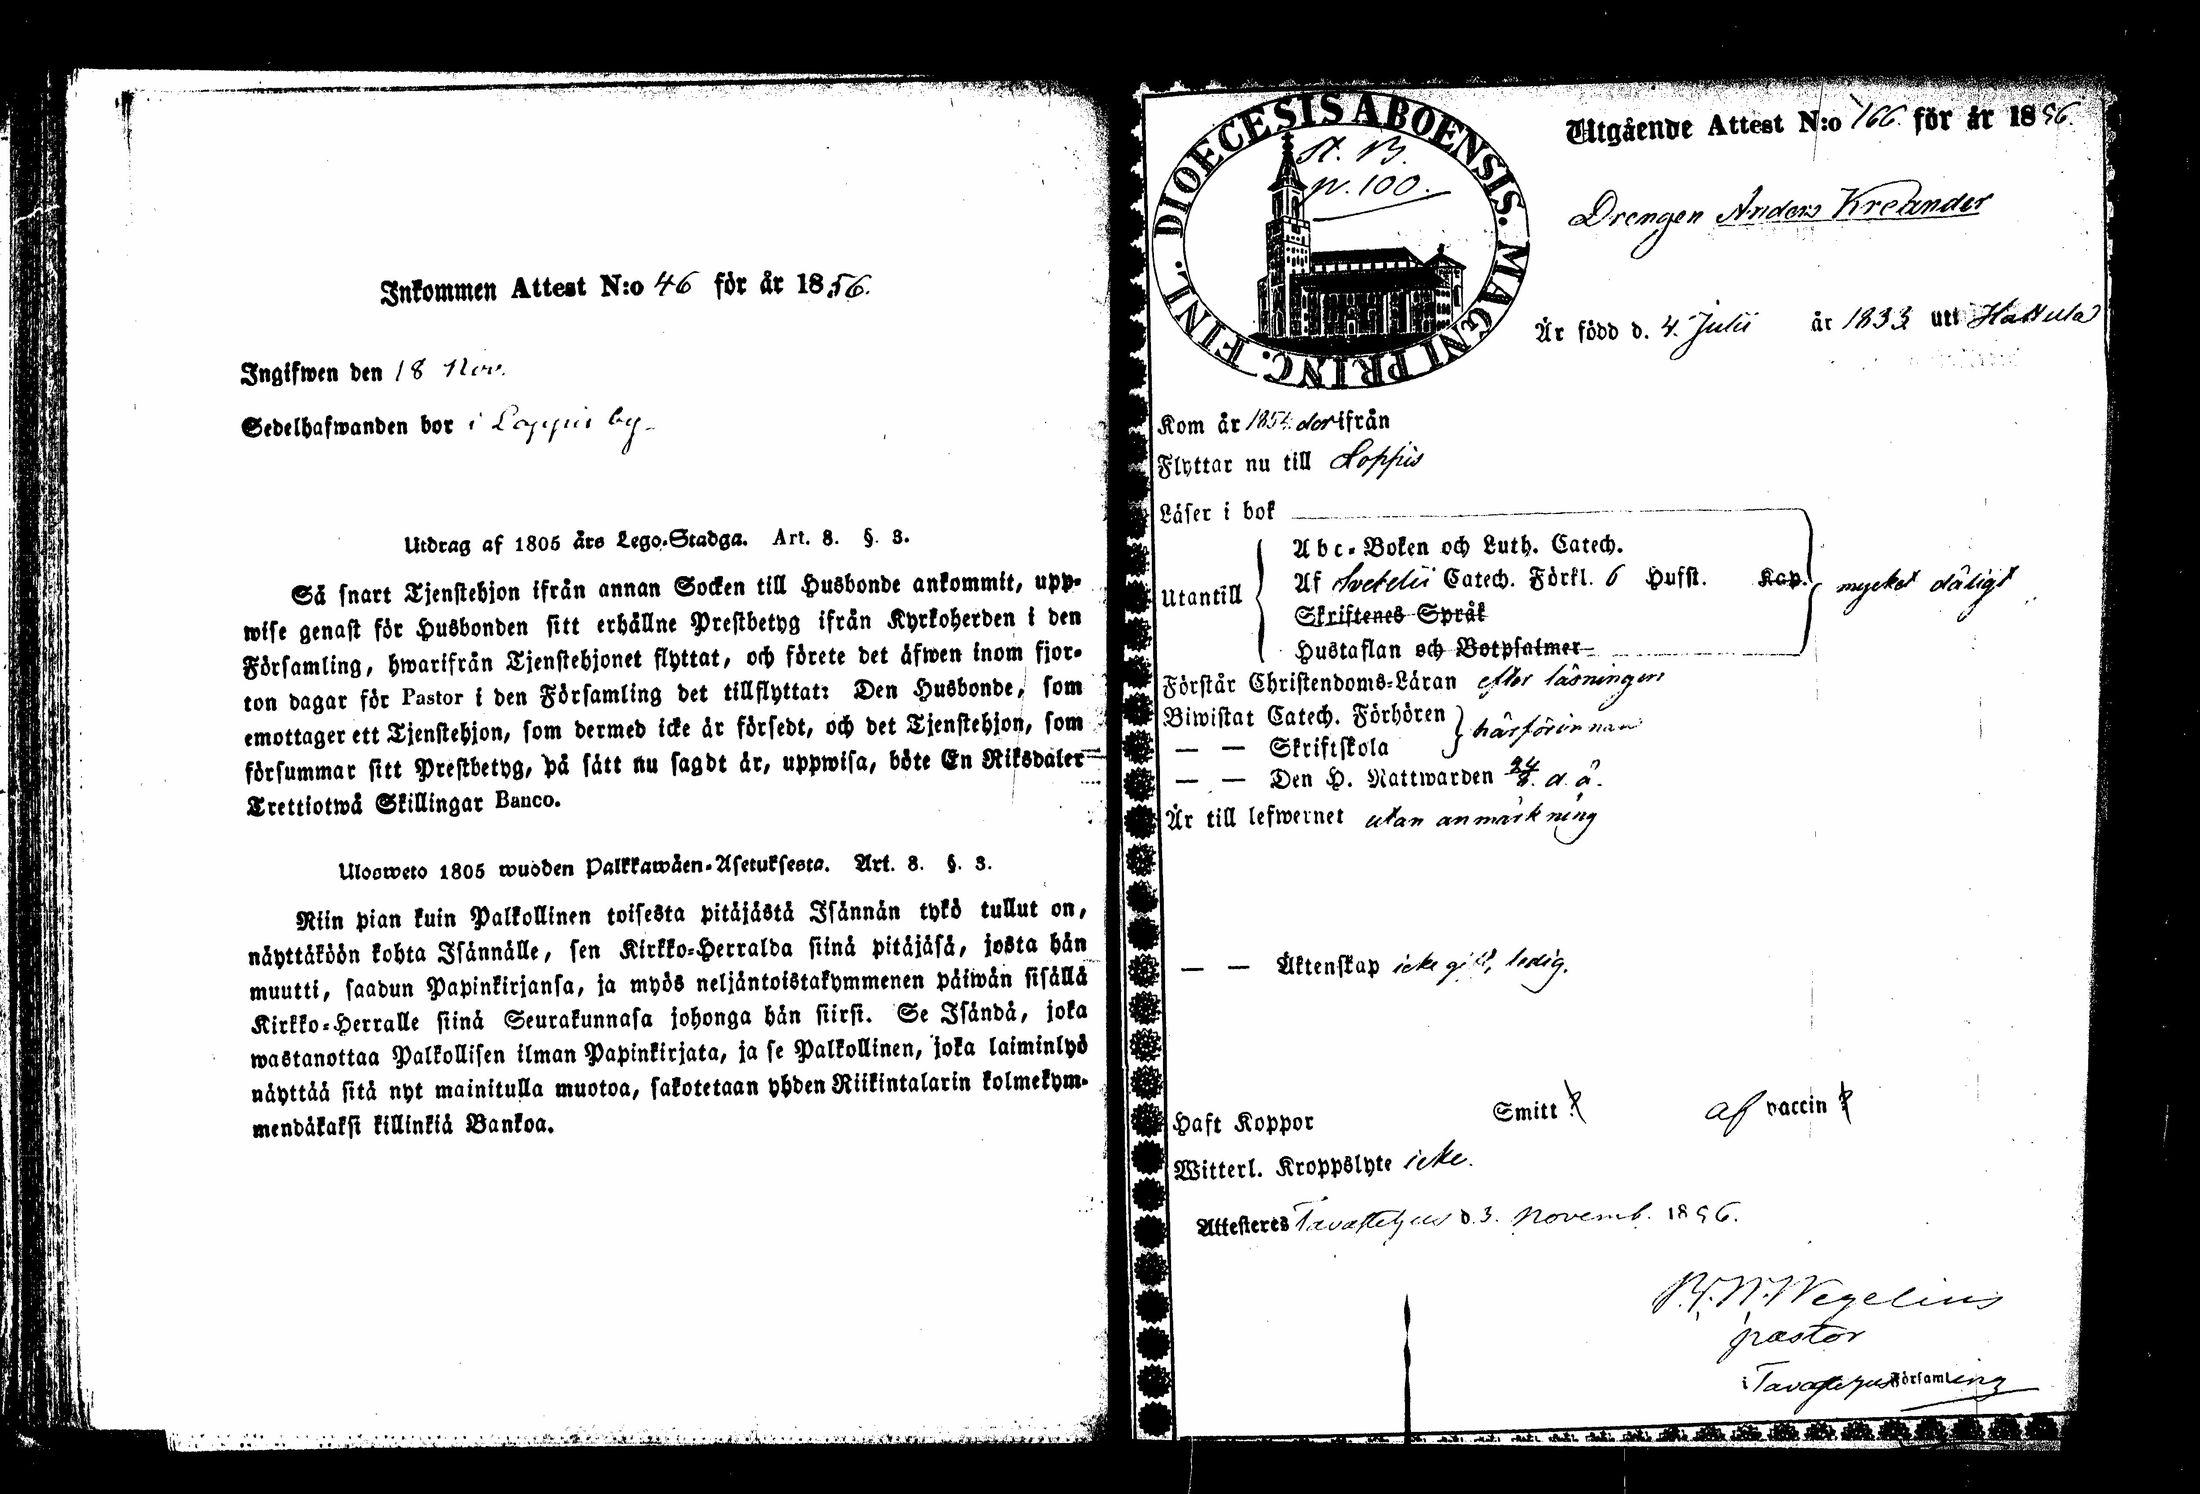 Inkommen Attest N:o 46 för år 1856.
Ingifwen den 18 Nov.
Sedelhafwanden bor i Loppis by
Utdrag af 1805 års Lego-Stadga. Art. 8. §. 3.
Så snart Tjenstehjon ifrån annan Socken till Husbonde ankommit, upp-
wise genast för Husbonden sitt erhållne Prestbetyg ifrån Kyrkoherden i den
Församling, hwarifrån Tjenstehjonet flyttat, och förete det äfwen inom fjor-
ton dagar för Pastor i den Församling det tillflyttat: Den Husbonde, som
emottager ett Tjenstehjon, som dermed icke är försedt, och det Tjenstehjon, som
försummar sitt Prestbetyg, på sätt nu sagdt är, uppwisa, böte En Riksdaler
Trettiotwå Skillingar Banco.
Ulosweto 1805 wuoden Palkkawäen-Asetuksesta. Art. 8. §. 3.
Niin pian kuin Palkollinen toisesta pitäjästä Isännän tykö tullut on,
näyttäköön kohta Isännälle, sen Kirkko-Herralda siinä pitäjäsä, josta hän
muutti, saadun Papinkirjansa, ja myös neljäntoistakymmenen päiwän sisällä
Kirkko-Herralle siinä Seurakunnasa johonga hän siirsi. Se Isändä, joka
wastanottaa Palkollisen ilman Papinkirjata, ja se Palkollinen, joka laiminlyö
näyttää sitä nyt mainitulla muotoa, sakotetaan yhden Riikintalarin kolmekym-
mendäkaksi killinkiä Bankoa.
DIOECESIS ABOENSIS. MAGNI PRINC. FINL.
St. B.
n. 100.
Utgående Attest N:o 166. för år 1856.
Drengen Anders Kreander
Är född d. 4. Julii år 1833 uti Hattula
Kom år 1854 derifrån
Flyttar nu till Loppis
Läser i bok
Abc-Boken och Luth. Catech.
Utantill Af Svebelii Catech. Förkl. 6 Hufst. Kap. mycket dåligt
Skriftenes Språk
Hustaflan och Botpsalmer
Förstår Christendoms-Läran efter läsningen
Biwistat Catech. Förhören härförinnan
— — Skriftskola
— — Den H. Nattwarden 24/8. d. å.
Är till lefwernet utan anmärkning
— — Äktenskap icke gift, ledig.
Haft Koppor Smitt af vaccin
Witterl. Kroppslyte icke.
Attesteres Tavastehus d. 3. Novemb. 1856.
Wegelius
pastor
i Tavastehus Församling